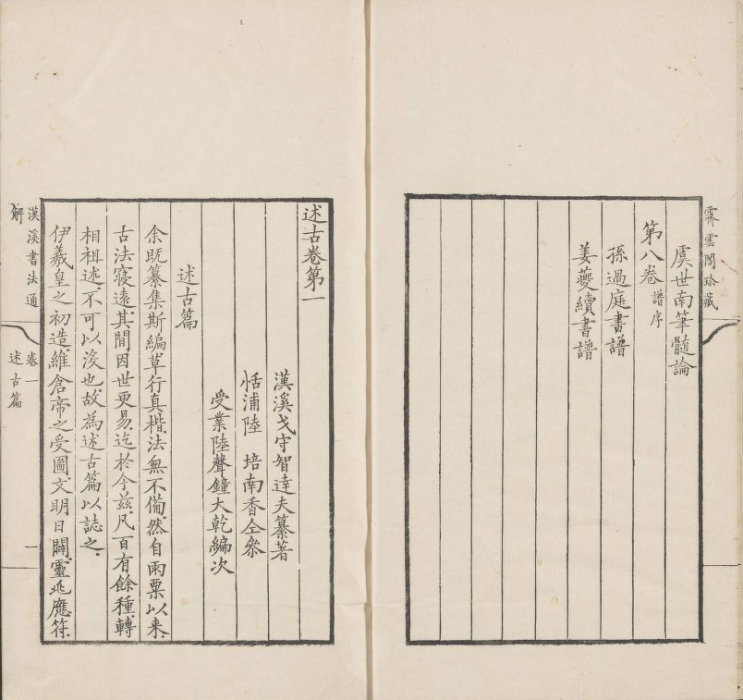 霽雲閣珍藏
虞世南筆髓論
第八卷 譜序
孫過庭書譜
姜夔續書譜
述古卷第一
漢溪戈守智達夫纂著
恬浦陸 培南香仝叅
受業陸聲鐘大乾編次
述古篇
余既纂集斯編草行真楷法無不備然自雨粟以来
古法寖遠其間因世更易迄於今玆凡百有餘種轉
相祖述不可以淩也故為述古篇以誌之
伊羲皇之初造維倉帝之受圖文明日闢靈兆應符
漢溪書法通解
卷一
述古篇
一